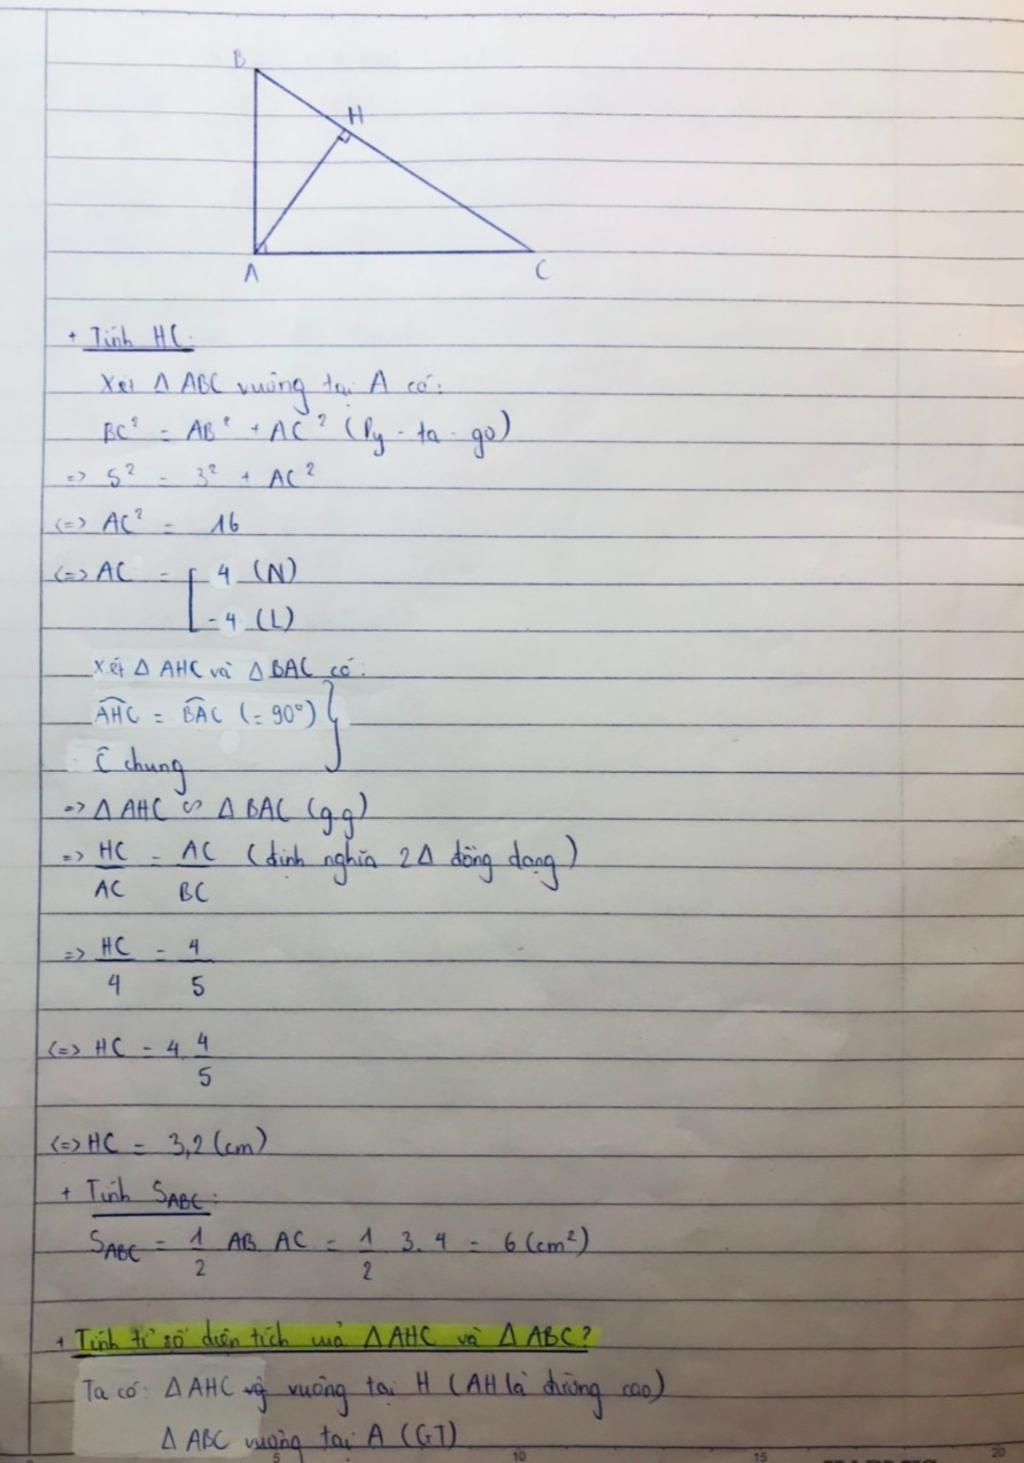 B
H
A
C
+ Tính HC:
Xét Δ ABC vuông tại A có:
BC² = AB² + AC² (Py-ta-go)
=> 5² = 3² + AC²
<=> AC² = 16
<=> AC = [ 4 (N)
-4 (L)
Xét Δ AHC và Δ BAC có:
AHC = BAC (= 90°) }
Ĉ chung
=> Δ AHC ∽ Δ BAC (g.g)
=> HC/AC = AC/BC (định nghĩa 2Δ đồng dạng)
=> HC/4 = 4/5
<=> HC = 4. 4/5
<=> HC = 3,2 (cm)
+ Tính SABC:
SABC = 1/2 AB. AC = 1/2 3. 4 = 6 (cm²)
+ Tính tỉ số diện tích của Δ AHC và Δ ABC?
Ta có: Δ AHC vuông tại H (AH là đường cao)
Δ ABC vuông tại A (GT)
5
10
15
20